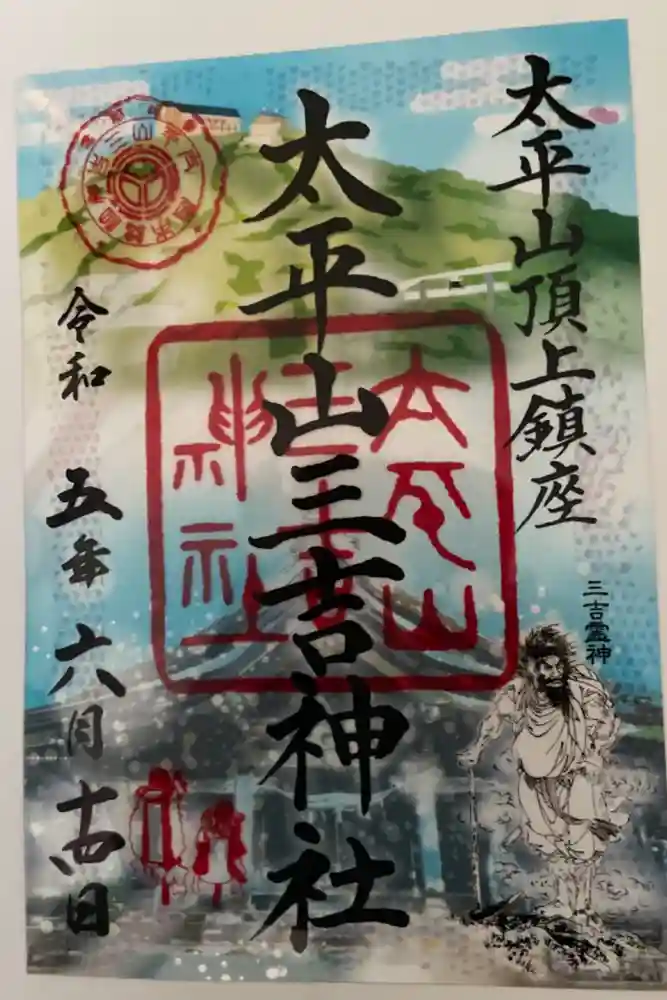 太平山頂上鎮座
太平山三吉神社
三吉霊神
令和五年六月十四日
太平山
三吉
神社